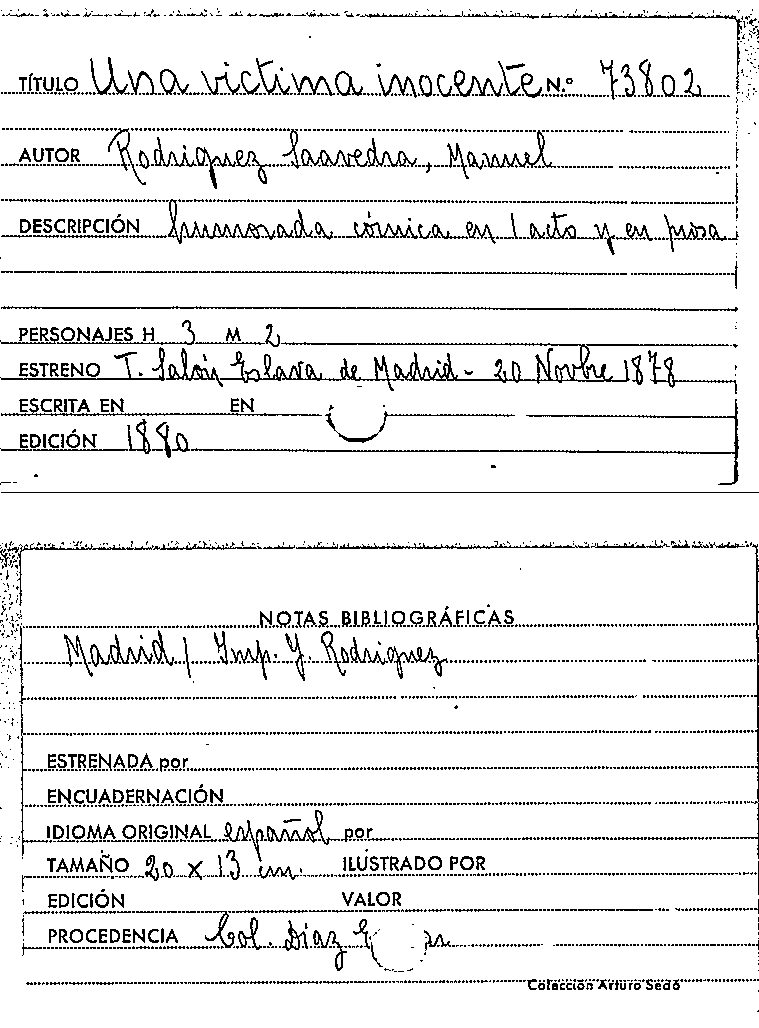 TÍTULO Una victima inocente N.º 73802
AUTOR Rodriguez Saavedra, Manuel
DESCRIPCIÓN humorada cómica en 1 acto y en prosa
PERSONAJES H 3 M 2
ESTRENO T. Salón Eslava de Madrid - 20 Novbre 1878
ESCRITA EN EN
EDICIÓN 1880
NOTAS BIBLIOGRÁFICAS
Madrid / Imp. Y. Rodriguez
ESTRENADA por
ENCUADERNACIÓN
IDIOMA ORIGINAL español por
TAMAÑO 20 x 13 cm. ILUSTRADO POR
EDICIÓN VALOR
PROCEDENCIA Col. Díaz
Colección Arturo Sedó